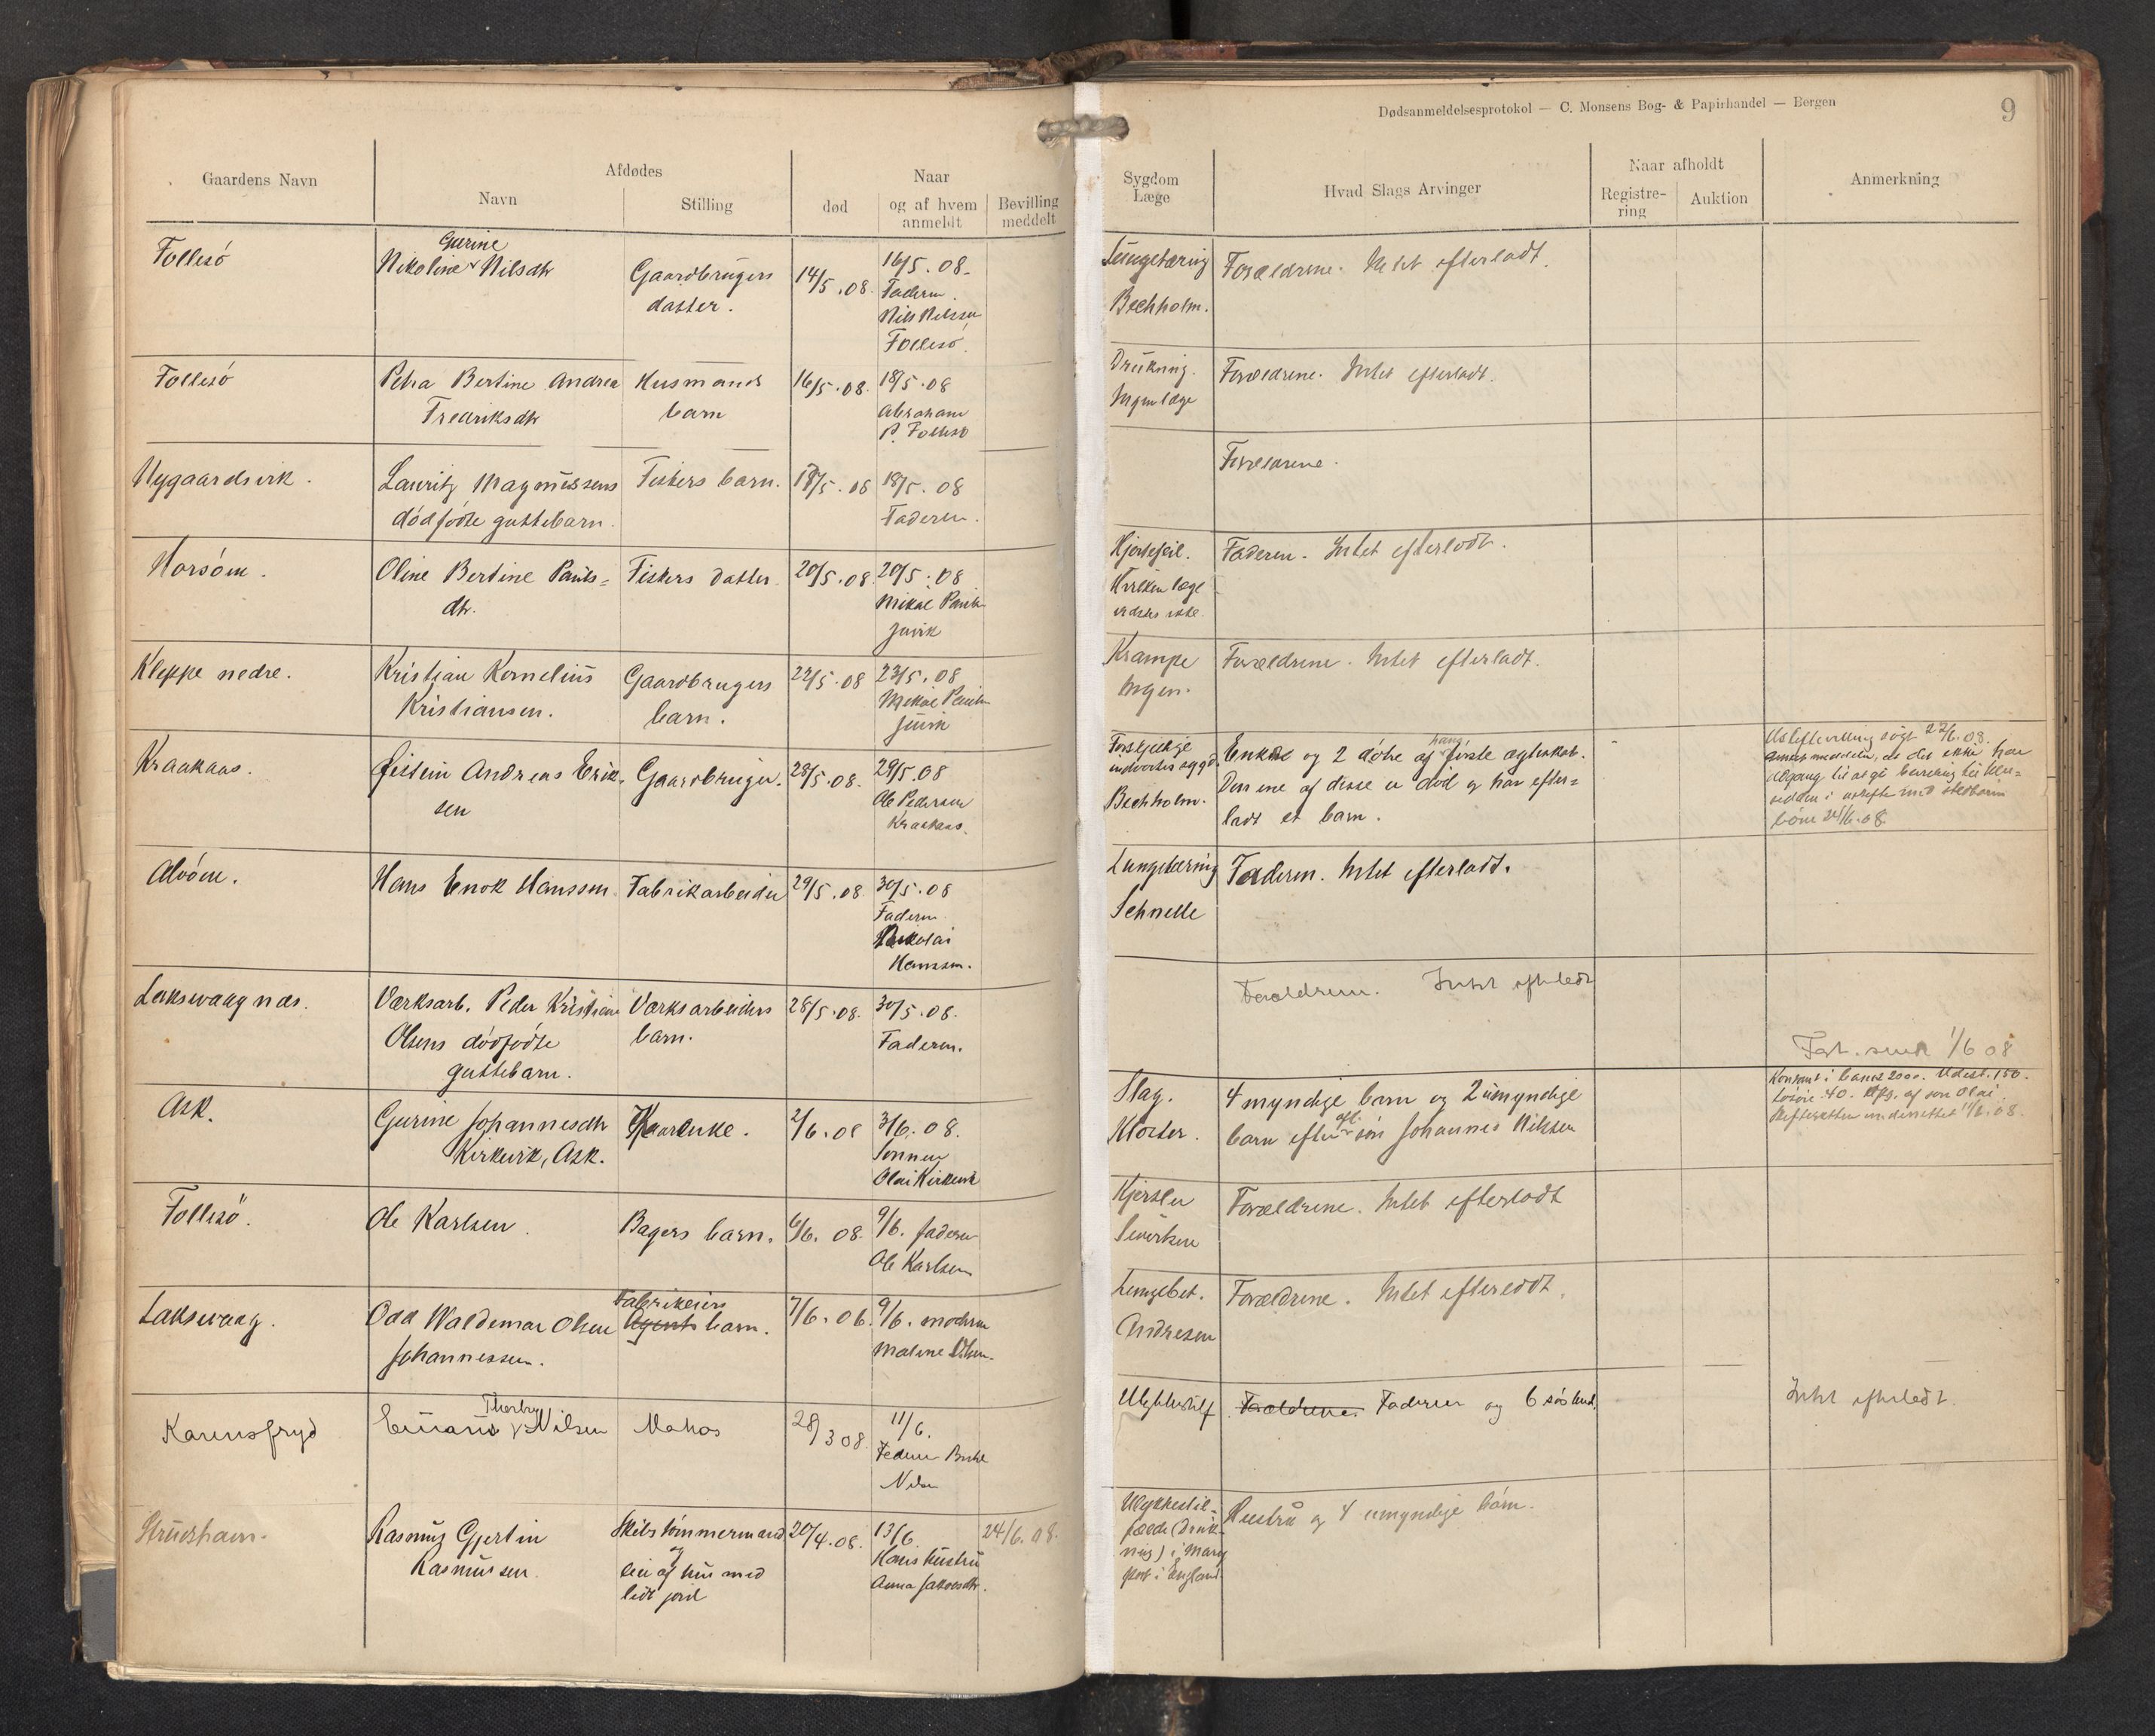 Dødsanmeldelsesprotokol — C. Monsens Bog- & Papirhandel — Bergen
9
Gaardens Navn
Afdødes
Navn
Stilling
Naar
død
og af hvem anmeldt
Bevilling meddelt
Sygdom Læge
Hvad Slags Arvinger
Naar afholdt
Registrering
Auktion
Anmerkning
Follesö
Gurine
Nikoline Nilsdtr
Gaardbrugers
datter.
14/5.08.
16/5.08.
Faderen.
Nils Nilssen
Follesö.
Lungetæring
Bechholm.
Forældrene. Intet efterladt.
Follesö
Petra Bertine Andrea
Fredriksdtr
Husmands
barn
16/5.08.
18/5.08
Abraham
P. Follesö
Drukning.
Ingen læge
Forældrene. Intet efterladt.
Nygaardsvik.
Lauritz Magnussens
dödfödte guttebarn.
Fiskers barn.
18/5.08
Faderen.
Forældrene.
Horsöen.
Oline Bertine Pauls=
dtr.
Fiskers datter
20/5.08.
20/5.08
Mikal Pauls
Juvik
Hjertefeil.
Hvilken læge
vides ikke.
Faderen. Intet efterladt.
Kleppe nedre.
Kristian Kornelius
Kristiansen.
Gaardbrugers
barn.
22/5.08
23/5.08
Mikal Pauls
Juvik
Krampe
Ingen.
Forældrene. Intet efterladt.
Kraakaas.
Öistein Andreas Erik-
sen
Gaardbruger.
28/5.08.
29/5.08
Ole Pedersen
Kraakaas.
Forskjellige
indvortes sygd.
Bechholm.
hans
Enke og 2 döbre af förste ægteskab.
Den ene af disse er död og har efter=
ladt et barn.
22/6.08.
Amtet meddeler, at det ikke har
adgang til at gi bevilling til hen=
sidden i uskifte med stedbarns
börn 24/6.08.
Alvöen.
Hans Enok Hanssen
Fabrikarbeider
29/5.08.
30/5.08
Faderen
Nikolai
Hanssen.
Lungetæring
Schnelle
Faderen. Intet efterladt.
Laksevaagnæs.
Værksarb. Peder Kristian
Olsens dödfödte
guttebarn.
Værksarbeiders
barn.
28/5.08.
30/5.08.
Faderen.
Forældrene. Intet efterladt
1/6 08
Ask.
Gurine Johannesdtr
Kirkevik, Ask.
Kaarenke.
2/6.08
3/6.08.
Sönnen
Olai Kirkevik
Slag.
Kloster.
4 myndige barn og 2 umyndige
afd.
barn efter sön Johannes Nilsen
Kontant i bank 200. Udest. 150.
Lösöre 40. af sön Olai.
Skifteretten underrettet 11/6.08.
Follesö.
Ole Karlsen.
Bagers barn.
6/6.08.
9/6. faderen
Ole Karlsen
Sivertsen
Forældrene. Intet efterladt
Laksevaag.
Odd Waldemar Olsen
Johannessen.
Fabrikeiers
Agents barn.
7/6.08.
9/6. moderen
Malene Olsen.
Lungebet.
Andresen
Forældrene. Intet efterladt.
Karensfryd
Thorbg
Einar Nilsen
Matros
28/3 08.
11/6.
Faderen
Nilsen
Ulykkestilf
Forældrene. Faderen og 6 söskend.
Intet efterladt.
Strusshavn.
Rasmus Gjertin
Rasmussen.
Skibstömmermand
og
eier af hus med
lidt jord
20/4.08.
13/6
Hans hustru
Anna Jakobsdtr.
24/6.08.
Ulykkestil-
fælde (Druk-
ning) i Mary
port i England
Hustru og 4 umyndige börn.